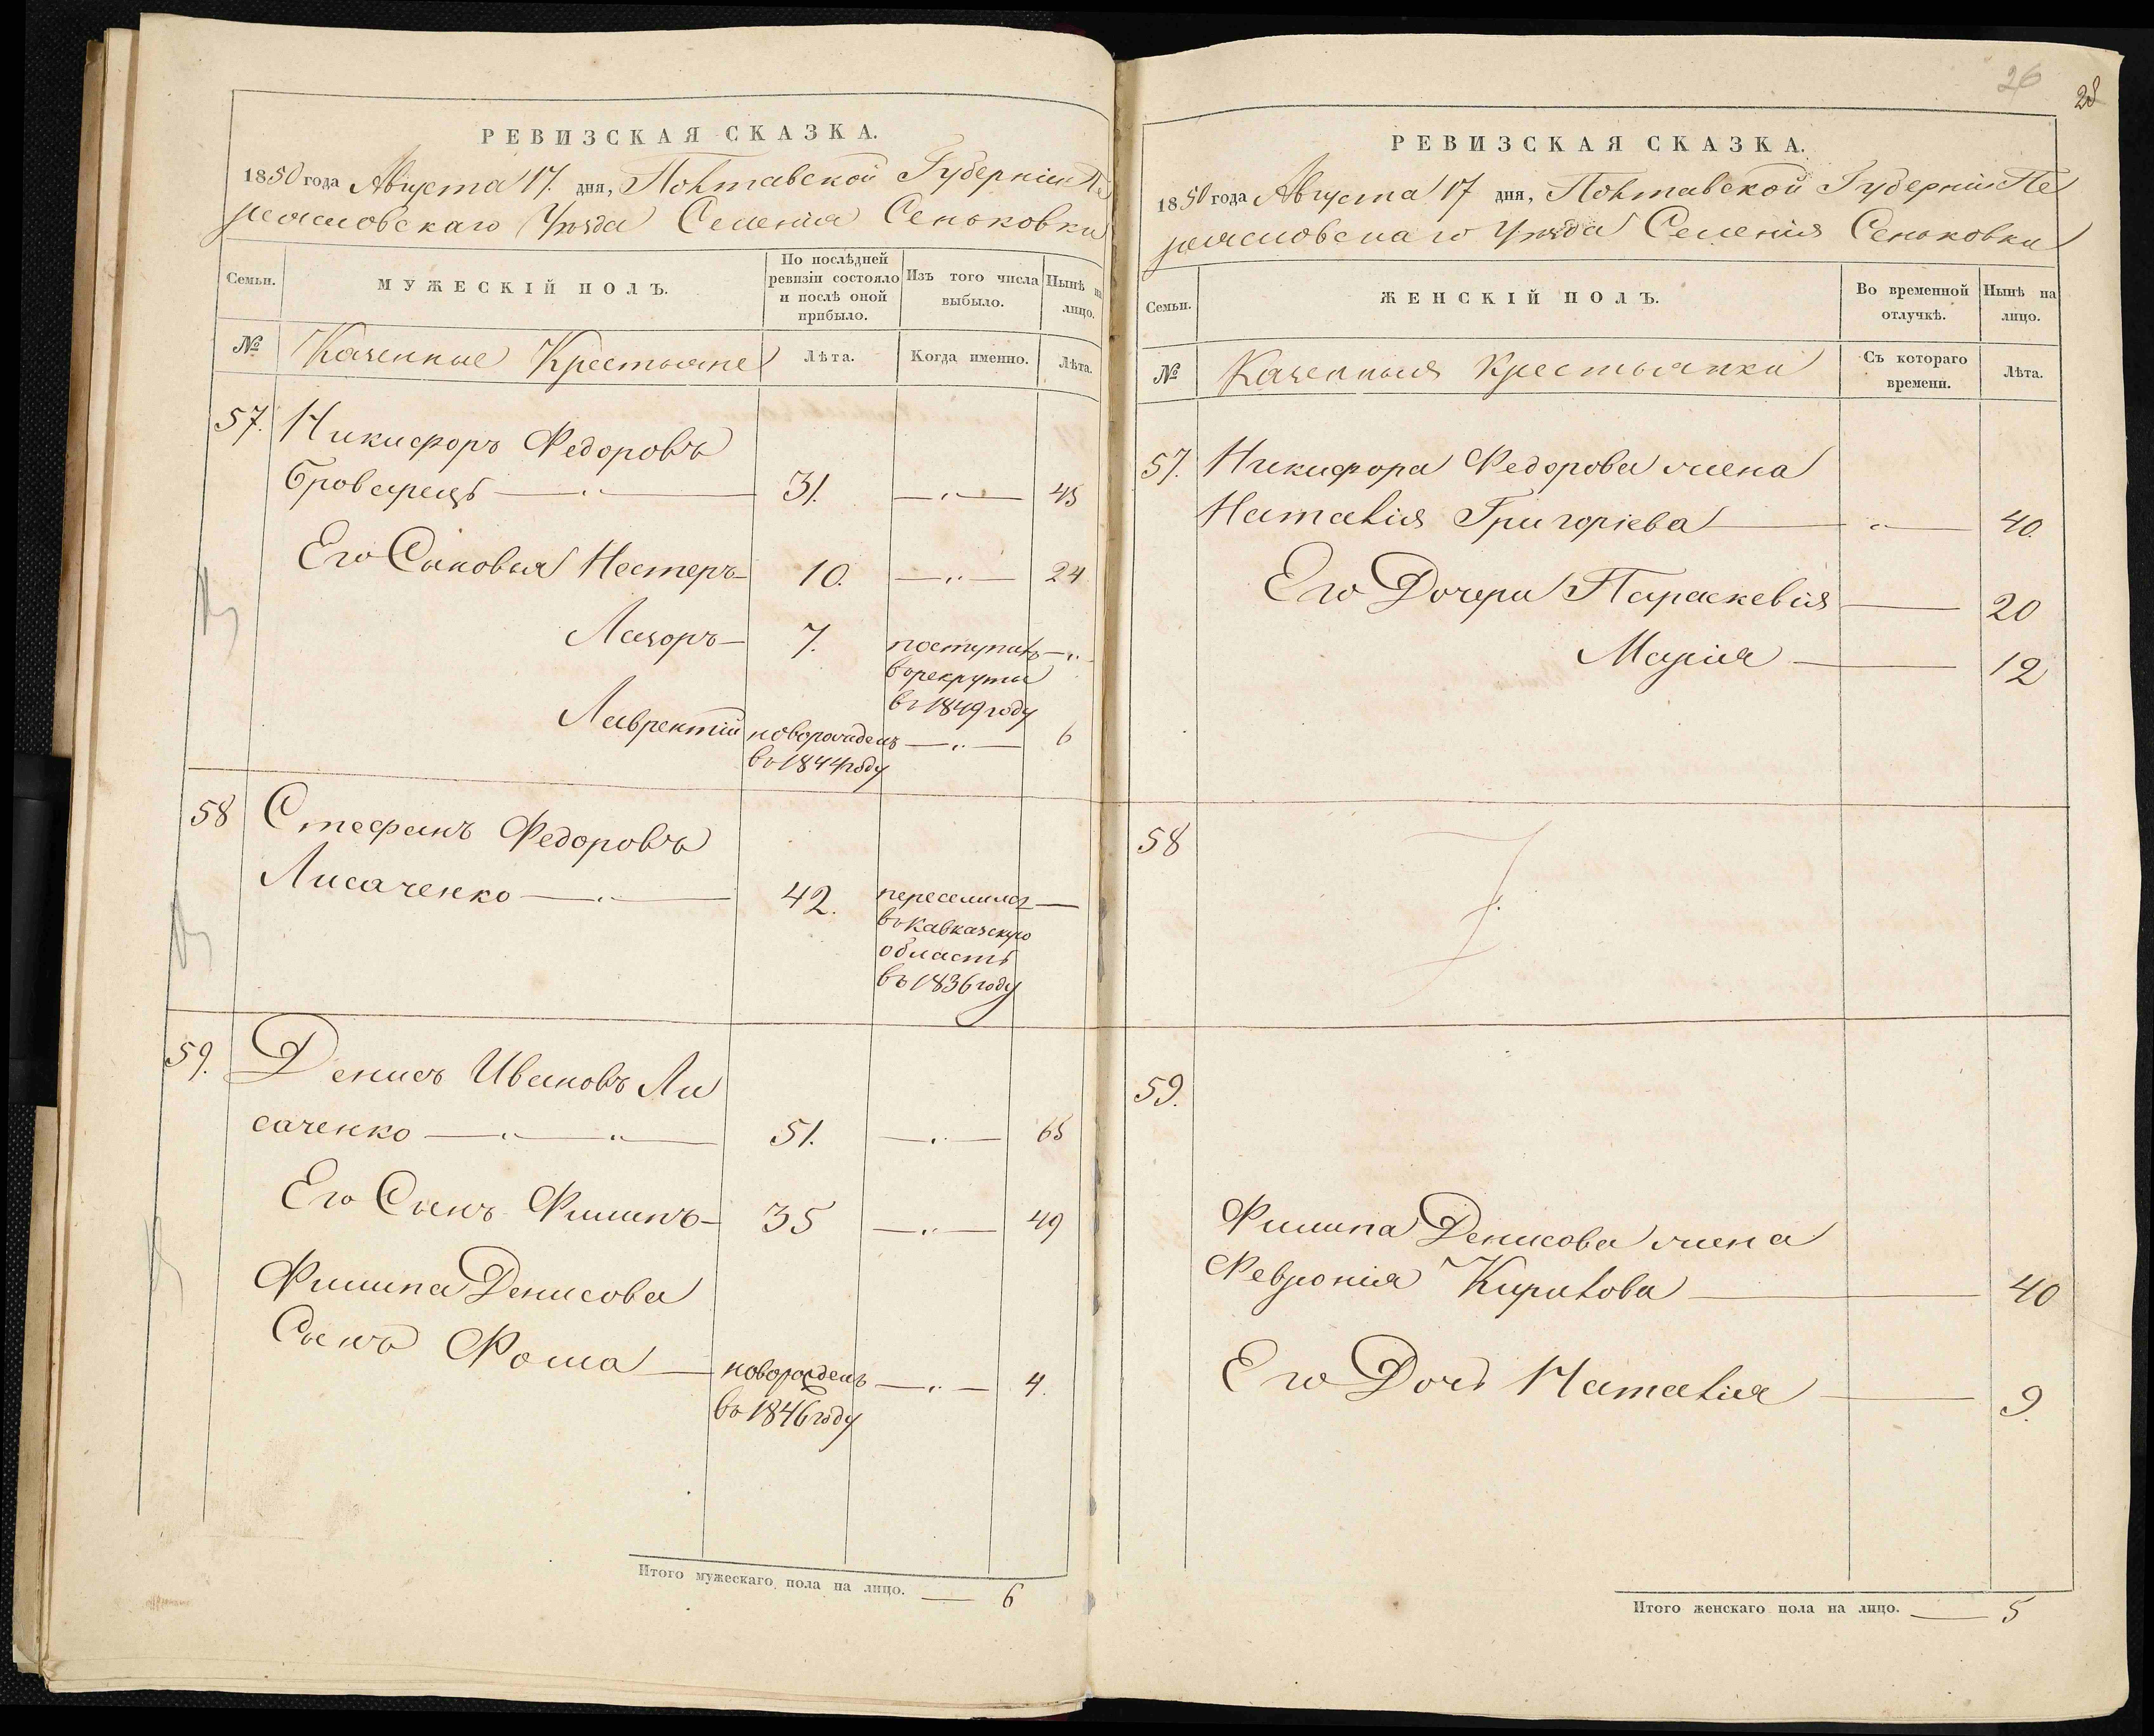 РЕВИЗСКАЯ СКАЗКА.
1850 года Августа 17. дня, Полтавской Губернiи Пе
реяславскаго Уѣзда Селенiя Сеньковки
Семьи.
МУЖЕСКIЙ ПОЛЪ.
По послѣдней
ревизiи состояло
и послѣ оной
прибыло.
Изъ того числа
выбыло.
Нынѣ на
лицо.
№
Казенные Крестьяне
Лѣта.
Когда именно.
Лѣта.
57. Никифоръ Федоровъ
Броварецъ — 31. — „ — 45
Его Сыновья Нестеръ — 10. — „ — 24
Лазоръ — 7. поступилъ — „
в рекруты
въ 1849 году
Лаврентiй новорожденъ — „ — 6
въ 1844 году
58 Стефанъ Федоровъ
Лисаченко — „ — 42. переселился —
въ Кавказскую
область
въ 1836 году
59. Денисъ Ивановъ Ли
саченко — „ — „ — 51. — „ — 65
Его Сынъ Филипъ — 35 — „ — 49
Филипа Денисова
Сынъ Фома — новорожденъ — „ — 4.
въ 1846 году
Итого мужескаго пола на лицо. — 6
26
28
РЕВИЗСКАЯ СКАЗКА.
1850 года Августа 17 дня, Полтавской Губернiи Пе
реяславскаго Уѣзда Селенiя Сеньковки
Семьи.
ЖЕНСКIЙ ПОЛЪ.
Во временной
отлучкѣ.
Нынѣ на
лицо.
№
Казенныя Крестьянки
Съ котораго
времени.
Лѣта.
57. Никифора Федорова жена
Наталiя Григорiева — „ — 40.
Его Дочери Параскевiя — 20
Марiя — 12
58
59.
Филипа Денисова жена
Феврoнiя Кирилова — 40
Его Дочь Наталiя — 9.
Итого женскаго пола на лицо. — 5